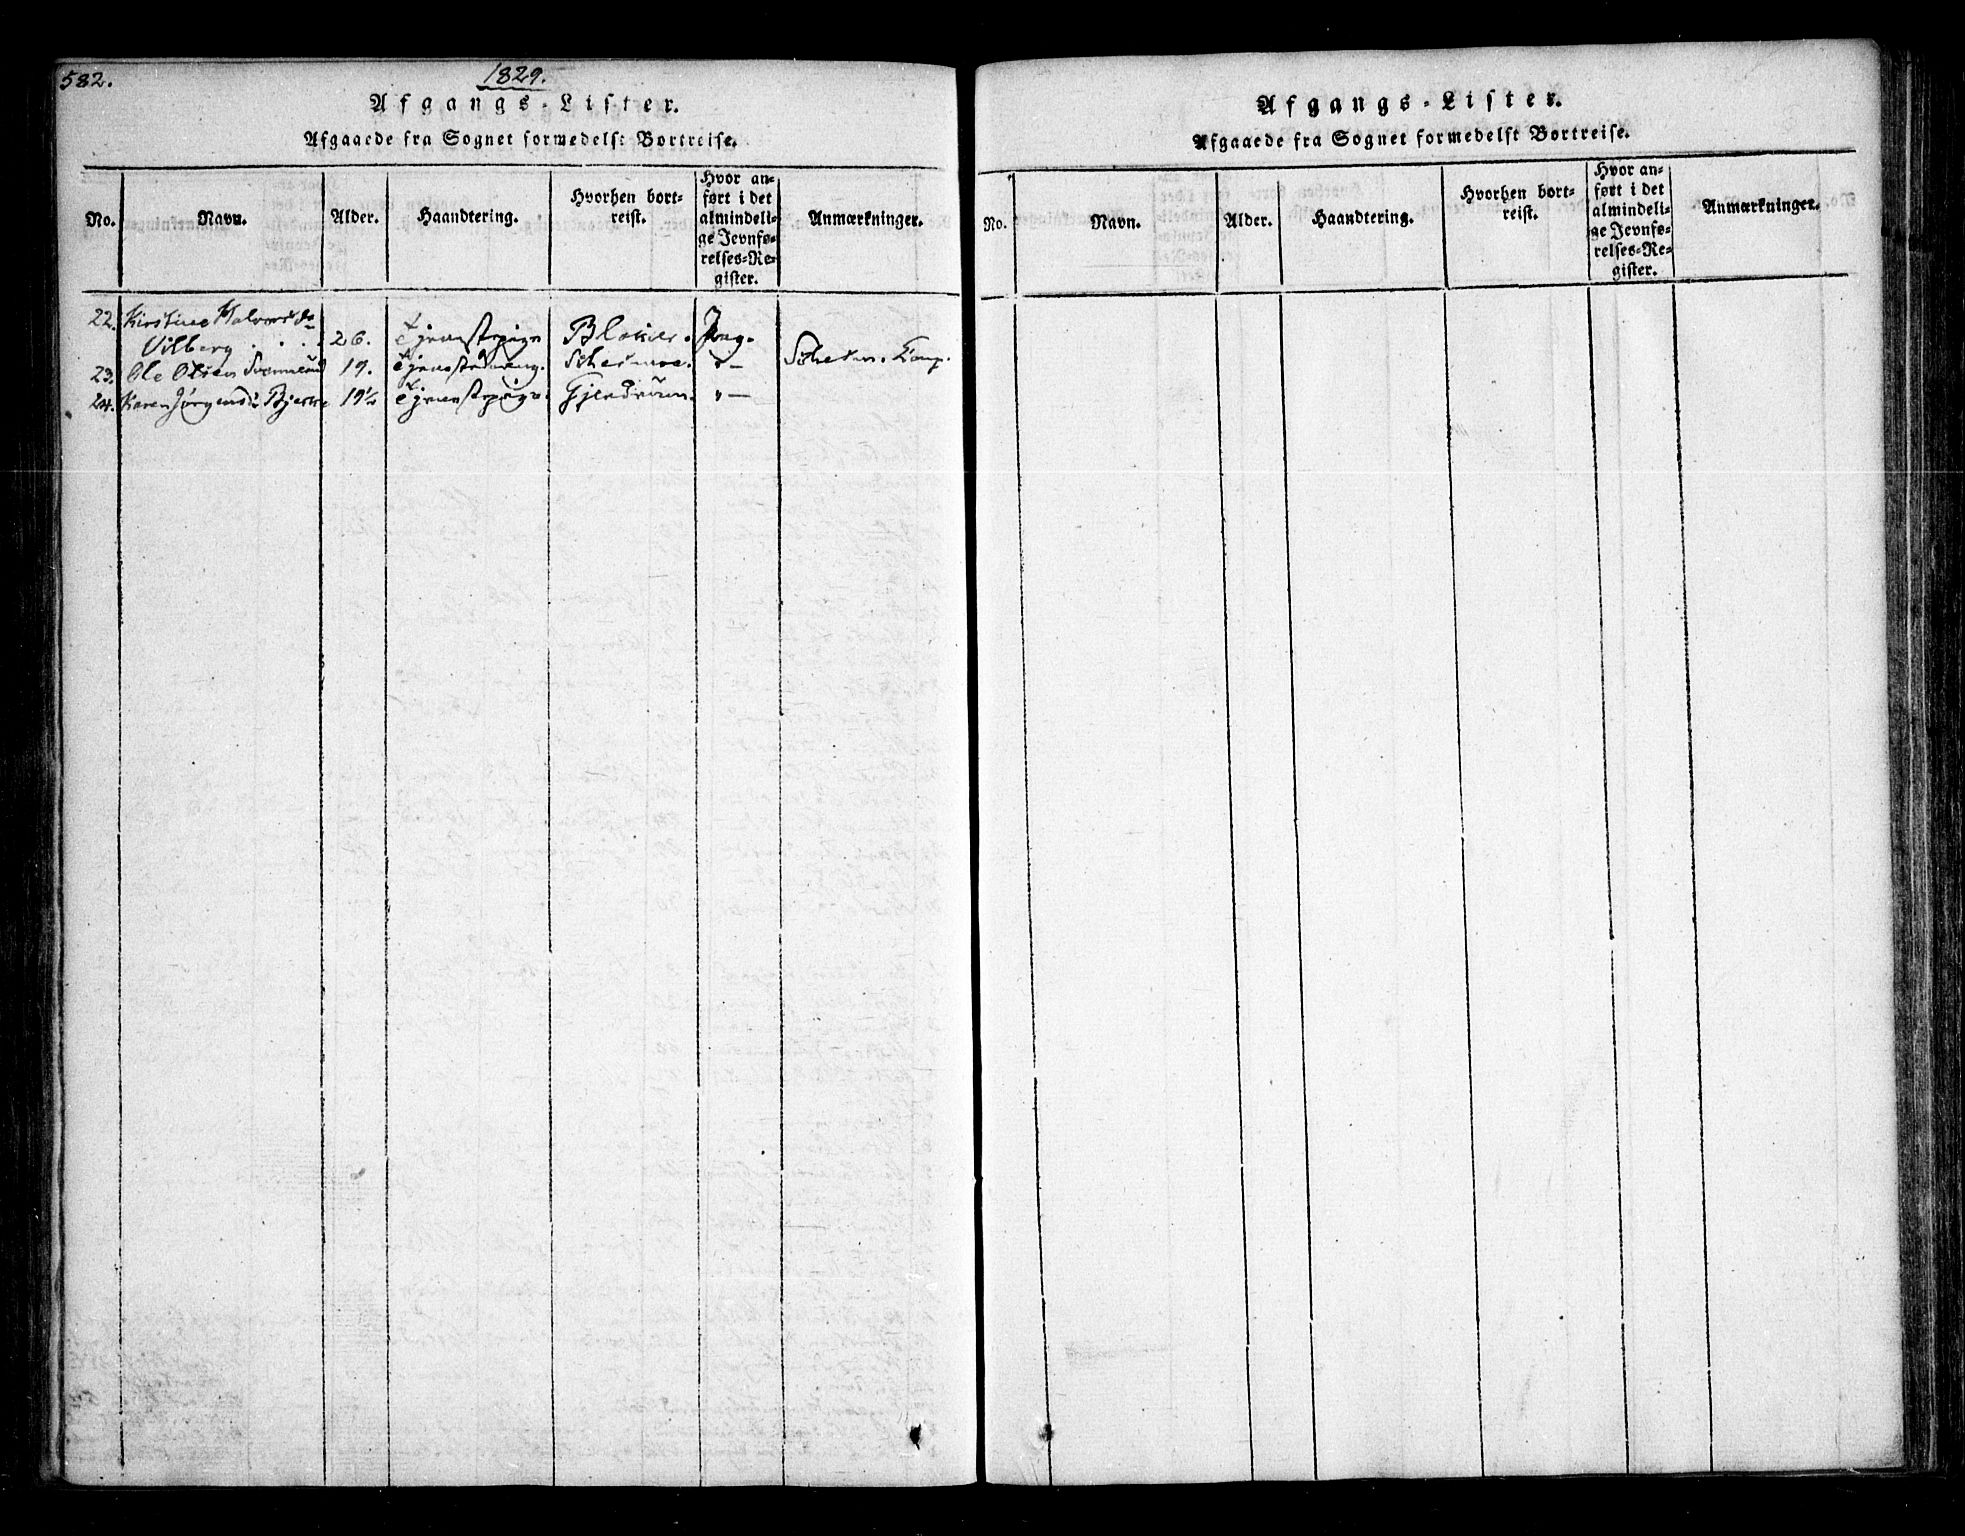 582.
1829.
Afgangs-Lister.
Afgaaede fra Sognet formedelst Bortreise.
No. Navn. Alder. Haandtering. Hvorhen bortreist. Hvor anført i det almindelige Jevnførelses-Register. Anmærkninger.
22. Kirstine Halvorsd.
Vilberg . . . 26. Tjenestpige Blakier.
23. Ole Olsen 19. Tjenestedreng. Schedsmoe.
24. Karen Jørgensd. Bjerke 19½ Tjenestpige. Gjerdrum.
Afgangs-Lister.
Afgaaede fra Sognet formedelst Bortreise.
No. Navn. Alder. Haandtering. Hvorhen bortreist. Hvor anført i det almindelige Jevnførelses-Register. Anmærkninger.